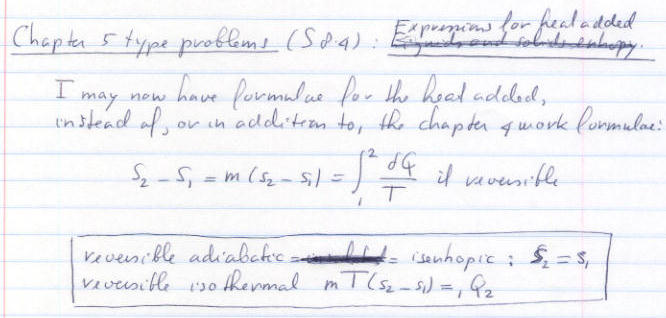 Chapter 5 type problems (S 8.4) : Expressions for heat added
Liquids and solids enhopy.
I may now have formulae for the heat added,
instead of, or in addition to, the chapter 4 work formulae:
S₂ - S₁ = m (s₂ - s₁) = ∫₁² δQ/T if reversible
reversible adiabatic = = isenhopic : S₂ = s₁
reversible isothermal m T (s₂ - s₁) = ₁Q₂